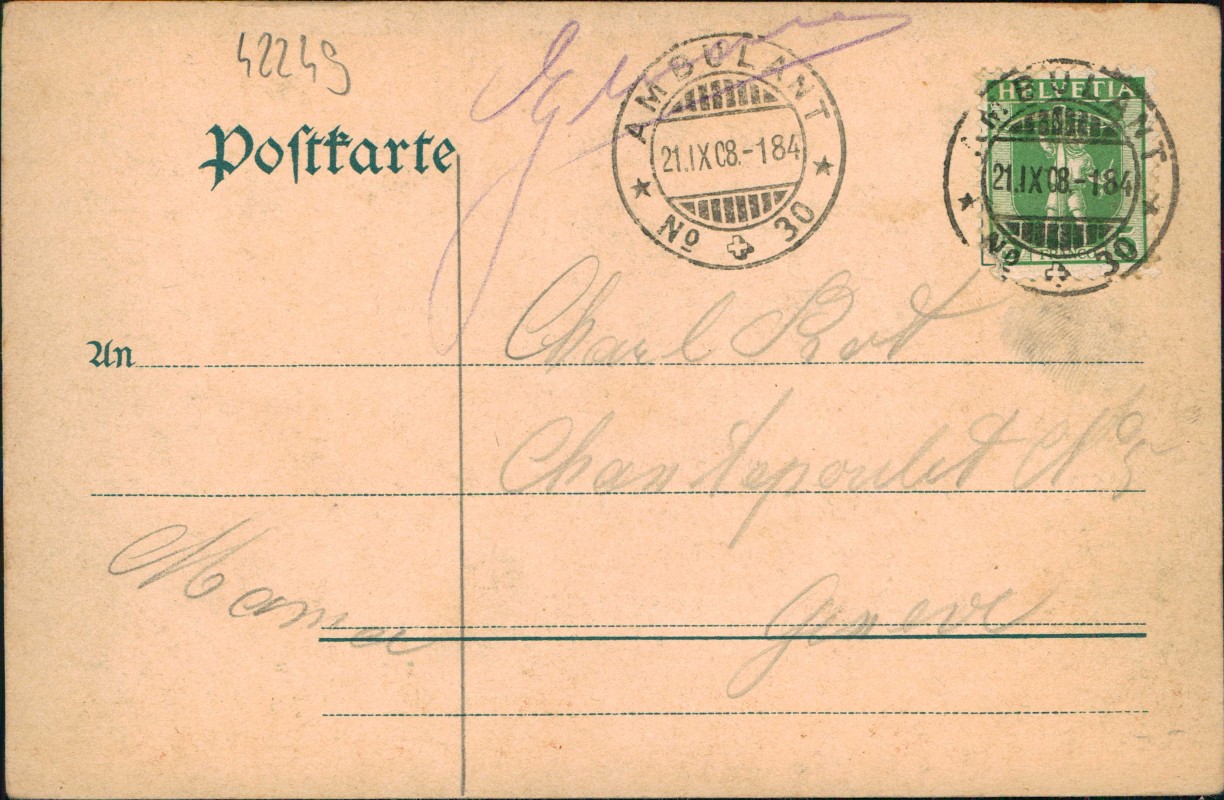 42249
Postkarte
AMBULANT
21.IX08.-184
No 30
HELVETIA
AMBULANT
21.IX08.-184
FRANCO
No 30
An
Charl
Chantepoulet No 5
Maman
Geneve